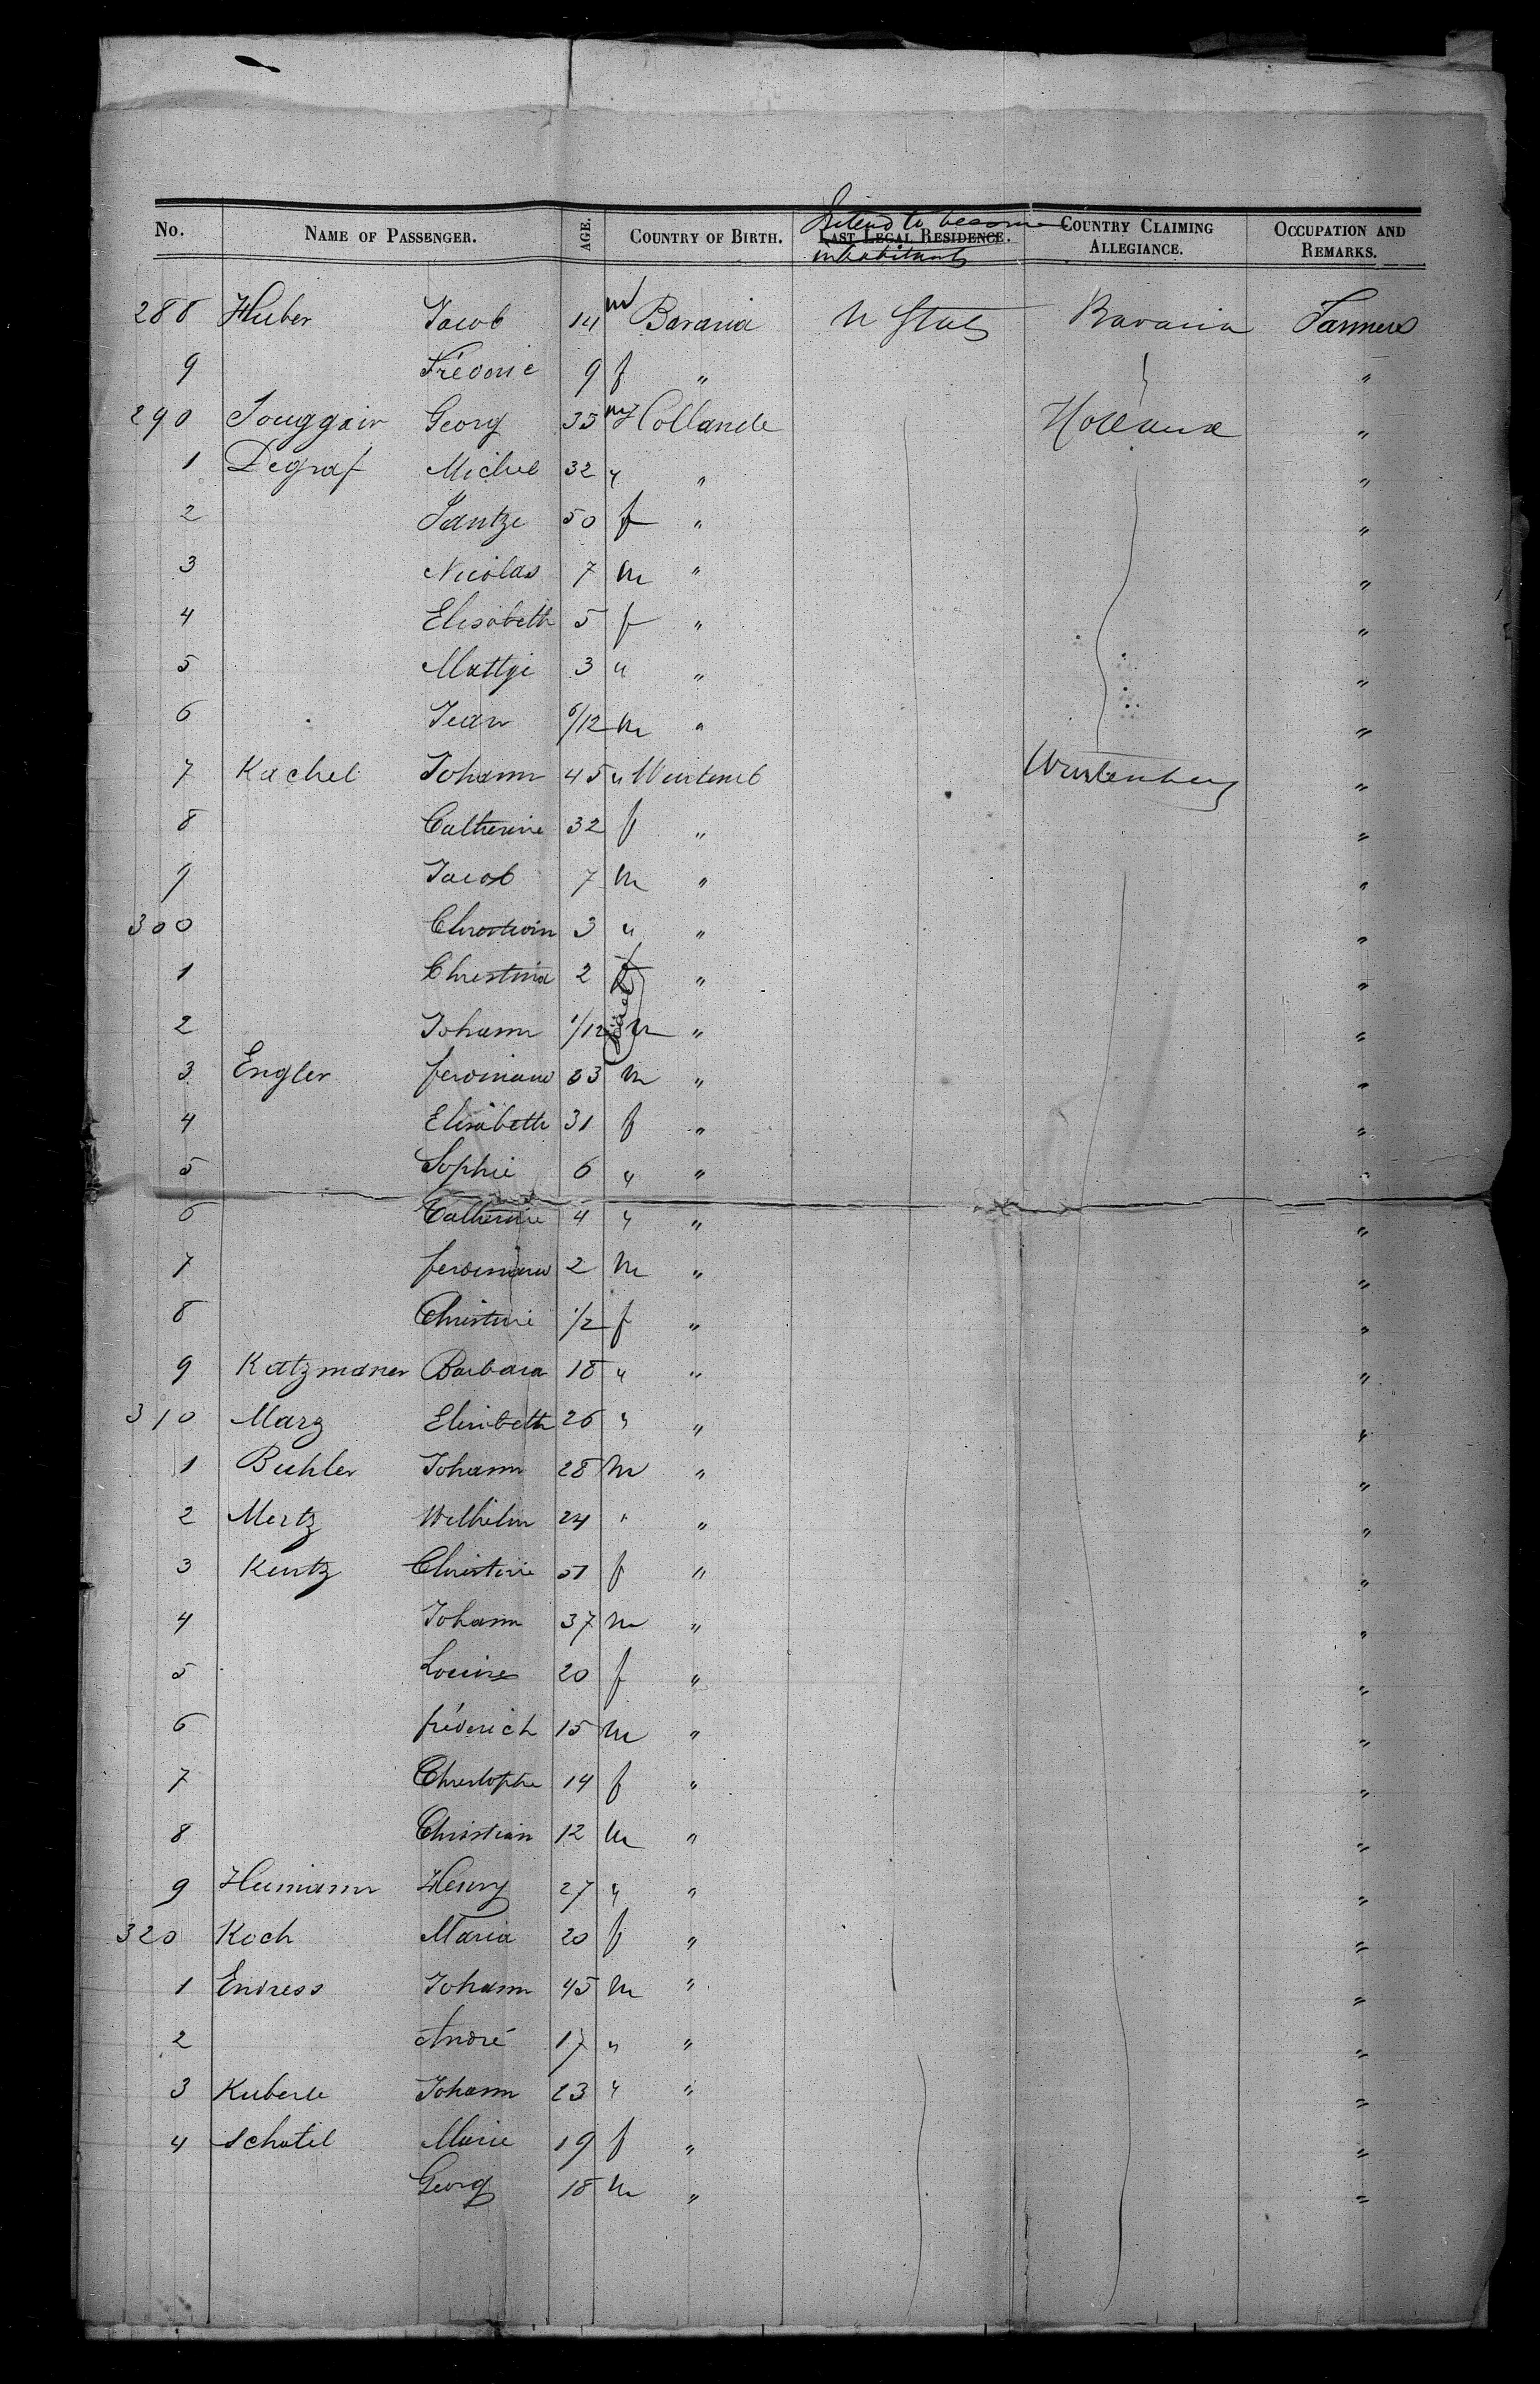 No. NAME OF PASSENGER. AGE. COUNTRY OF BIRTH. LAST LEGAL RESIDENCE. Intend to become inhabitants COUNTRY CLAIMING ALLEGIANCE. OCCUPATION AND REMARKS.
288 Huber Jacob 14 m Bavaria U States Bavaria Farmers
9 Fréderic 9 f " "
290 Georg 35 m Hollande Hollande "
1 Degraf Michel 32 " " "
2 Jantze 50 f " "
3 Nicolas 7 m " "
4 Elisabeth 5 f " "
5 Mattje 3 " " "
6 Jean 6/12 m " "
7 Kachel Johann 45 " Wurtemb Wurtemberg "
8 Catherine 32 f " "
9 Jacob 7 m " "
300 Christian 3 " " "
1 Christina 2 f " "
2 Johann 1/12 m " "
3 Engler ferdinand 33 m " "
4 Elisabeth 31 f " "
5 Sophie 6 " " "
6 Catherine 4 " " "
7 ferdinand 2 m " "
8 Christine 1/2 f " "
9 Katzmaner Barbara 18 " " "
310 Marz Elisabeth 26 " " "
1 Buhler Johann 28 m " "
2 Mertz Wilhelm 24 " " "
3 Kurtz Christine 51 f " "
4 Johann 37 m " "
5 Louise 20 f " "
6 fréderich 15 m " "
7 Christophe 14 f " "
8 Christian 12 m " "
9 Heimann Henry 27 " " "
320 Koch Maria 20 f " "
1 Endress Johann 45 m " "
2 André 17 " " "
3 Kuberle Johann 23 " " "
4 Schatel Marie 19 f " "
Georg 18 m " "